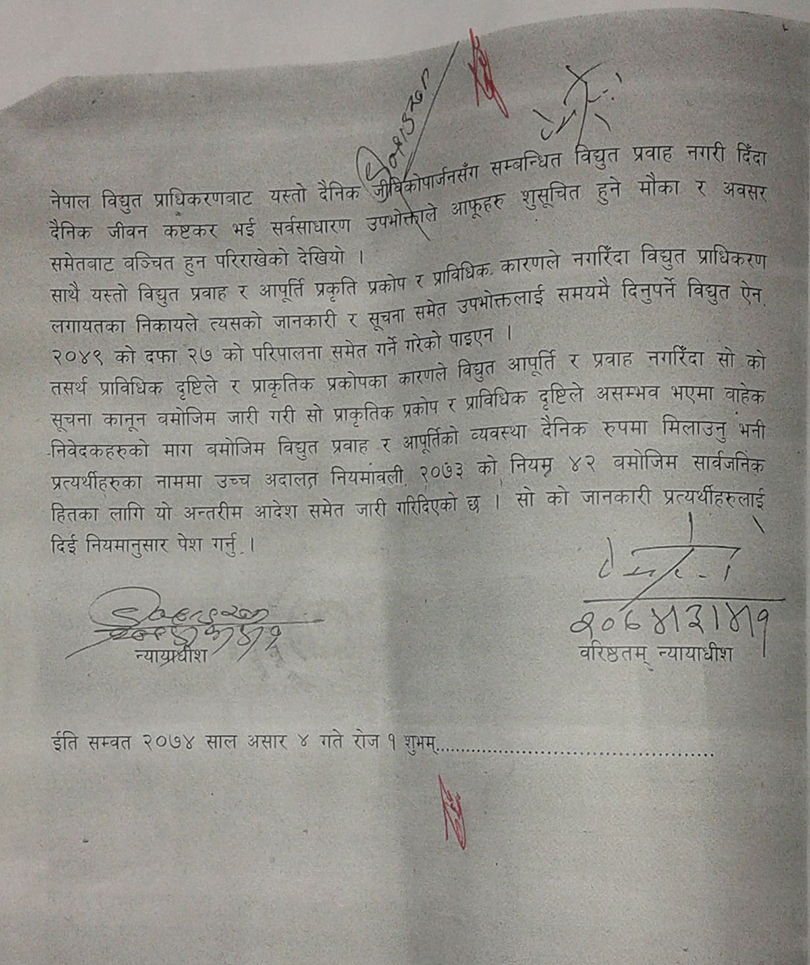 नेपाल विद्युत प्राधिकरणवाट यस्तो दैनिक जीविकोपार्जनसँग सम्बन्धित विद्युत प्रवाह नगरी दिँदा
दैनिक जीवन कष्टकर भई सर्वसाधारण उपभोक्ताले आफूहरु शुसूचित हुने मौका र अवसर
समेतबाट वञ्चित हुन परिराखेको देखियो ।
साथै यस्तो विद्युत प्रवाह र आपूर्ति प्रकृति प्रकोप र प्राविधिक कारणले नगरिँदा विद्युत प्राधिकरण
लगायतका निकायले त्यसको जानकारी र सूचना समेत उपभोक्तलाई समयमै दिनुपर्ने विद्युत ऐन,
२०४९ को दफा २७ को परिपालना समेत गर्ने गरेको पाइएन ।
तसर्थ प्राविधिक दृष्टिले र प्राकृतिक प्रकोपका कारणले विद्युत आपूर्ति र प्रवाह नगरिँदा सो को
सूचना कानून वमोजिम जारी गरी सो प्राकृतिक प्रकोप र प्राविधिक दृष्टिले असम्भव भएमा वाहेक
निवेदकहरुको माग वमोजिम विद्युत प्रवाह र आपूर्तिको व्यवस्था दैनिक रुपमा मिलाउनु भनी
प्रत्यर्थीहरुका नाममा उच्च अदालत नियमावली, २०७३ को नियम ४२ वमोजिम सार्वजनिक
हितका लागि यो अन्तरीम आदेश समेत जारी गरिदिएको छ । सो को जानकारी प्रत्यर्थीहरुलाई
दिई नियमानुसार पेश गर्नु ।
न्यायाधीश
२०७४।३।४।१
वरिष्ठतम् न्यायाधीश
ईति सम्वत २०७४ साल असार ४ गते रोज १ शुभम्......................................................